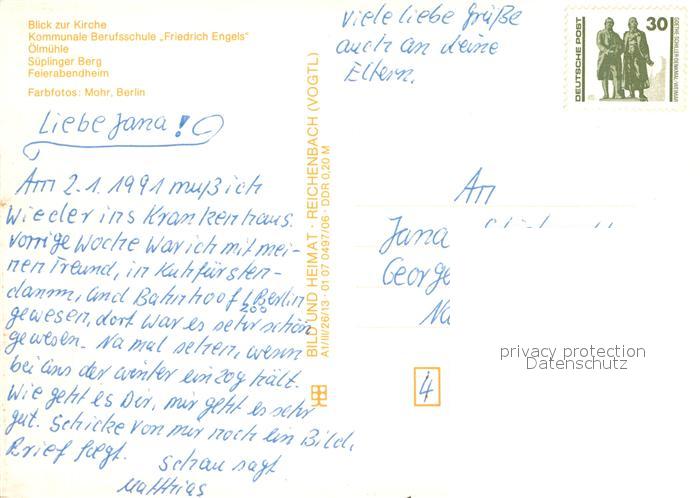 Blick zur Kirche
Kommunale Berufsschule „Friedrich Engels"
Ölmühle
Süplinger Berg
Feierabendheim
Farbfotos: Mohr, Berlin
Liebe Jana!
Am 2.1.1991 muß ich
wieder ins Krankenhaus.
vorrige Woche war ich mit mei-
nen Freund, in Kuhfürsten-
damm, und Bahnhoof Zoo Berlin
gewesen, dort war es sehr schön
gewesen. Na mal sehen, wenn
bei uns der winter einzog hält.
Wie geht es Dir, mir geht es sehr
gut. Schicke von mir noch ein Bild,
Brief folgt. Schau sagt
Matthias
viele liebe Grüße
auch an deine
Eltern.
BILD UND HEIMAT · REICHENBACH (VOGTL)
A1/III/26/13 · 01 07 0497/06 · DDR 0,20 M
DEUTSCHE POST
30
GOETHE-SCHILLER-DENKMAL · WEIMAR
An
Jana
George
Na
4
privacy protection
Datenschutz